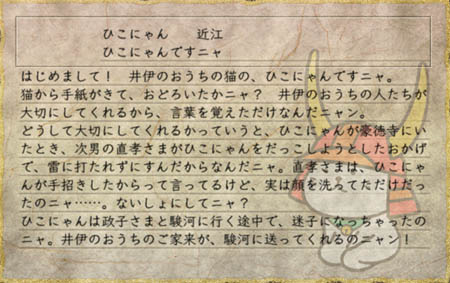 ひこにゃん　近江
ひこにゃんですニャ
はじめまして！　井伊のおうちの猫の、ひこにゃんですニャ。
猫から手紙がきて、おどろいたかニャ？　井伊のおうちの人たちが
大切にしてくれるから、言葉を覚えただけなんだニャン。
どうして大切にしてくれるかっていうと、ひこにゃんが豪徳寺にい
たとき、次男の直孝さまがひこにゃんをだっこしようとしたおかげ
で、雷に打たれずにすんだからなんだニャ。直孝さまは、ひこにゃ
んが手招きしたからって言ってるけど、実は顔を洗ってただけだっ
たのニャ……。ないしょにしてニャ？
ひこにゃんは政子さまと駿河に行く途中で、迷子になっちゃったの
ニャ。井伊のおうちのご家来が、駿河に送ってくれるのニャン！